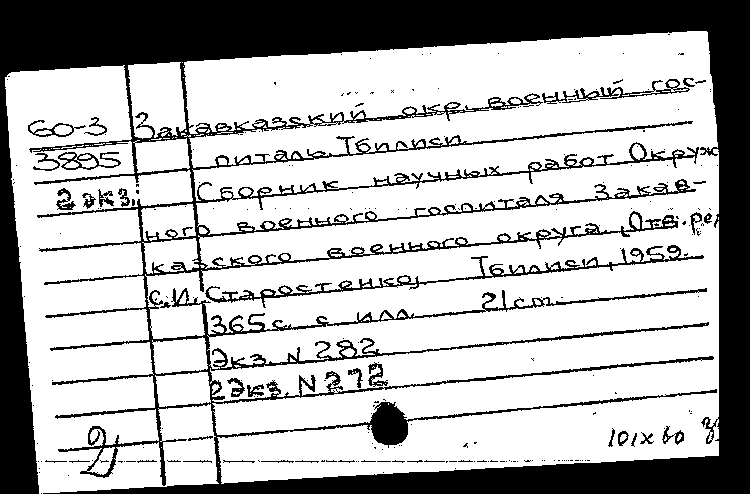 60-3 Закавказский окр. военный гос-
3895 питаль. Тбилиси.
2 экз. Сборник научных работ Окруж
ного военного госпиталя Закав-
казского военного округа. [Отв. ред
С.И. Старостенко]. Тбилиси, 1959.
365 с. с илл. 21 cm.
Экз. N 282
2 Экз. N 272
2)
101 x 60